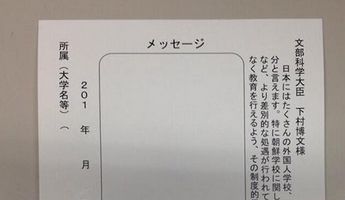 文部科学大臣 下村博文様
日本にはたくさんの外国人学校、
分と言えます。特に朝鮮学校に関し
など、より差別的な処遇が行われて
なく教育を行えるよう、その制度的
メッセージ
201 年 月
所属（大学名等）（